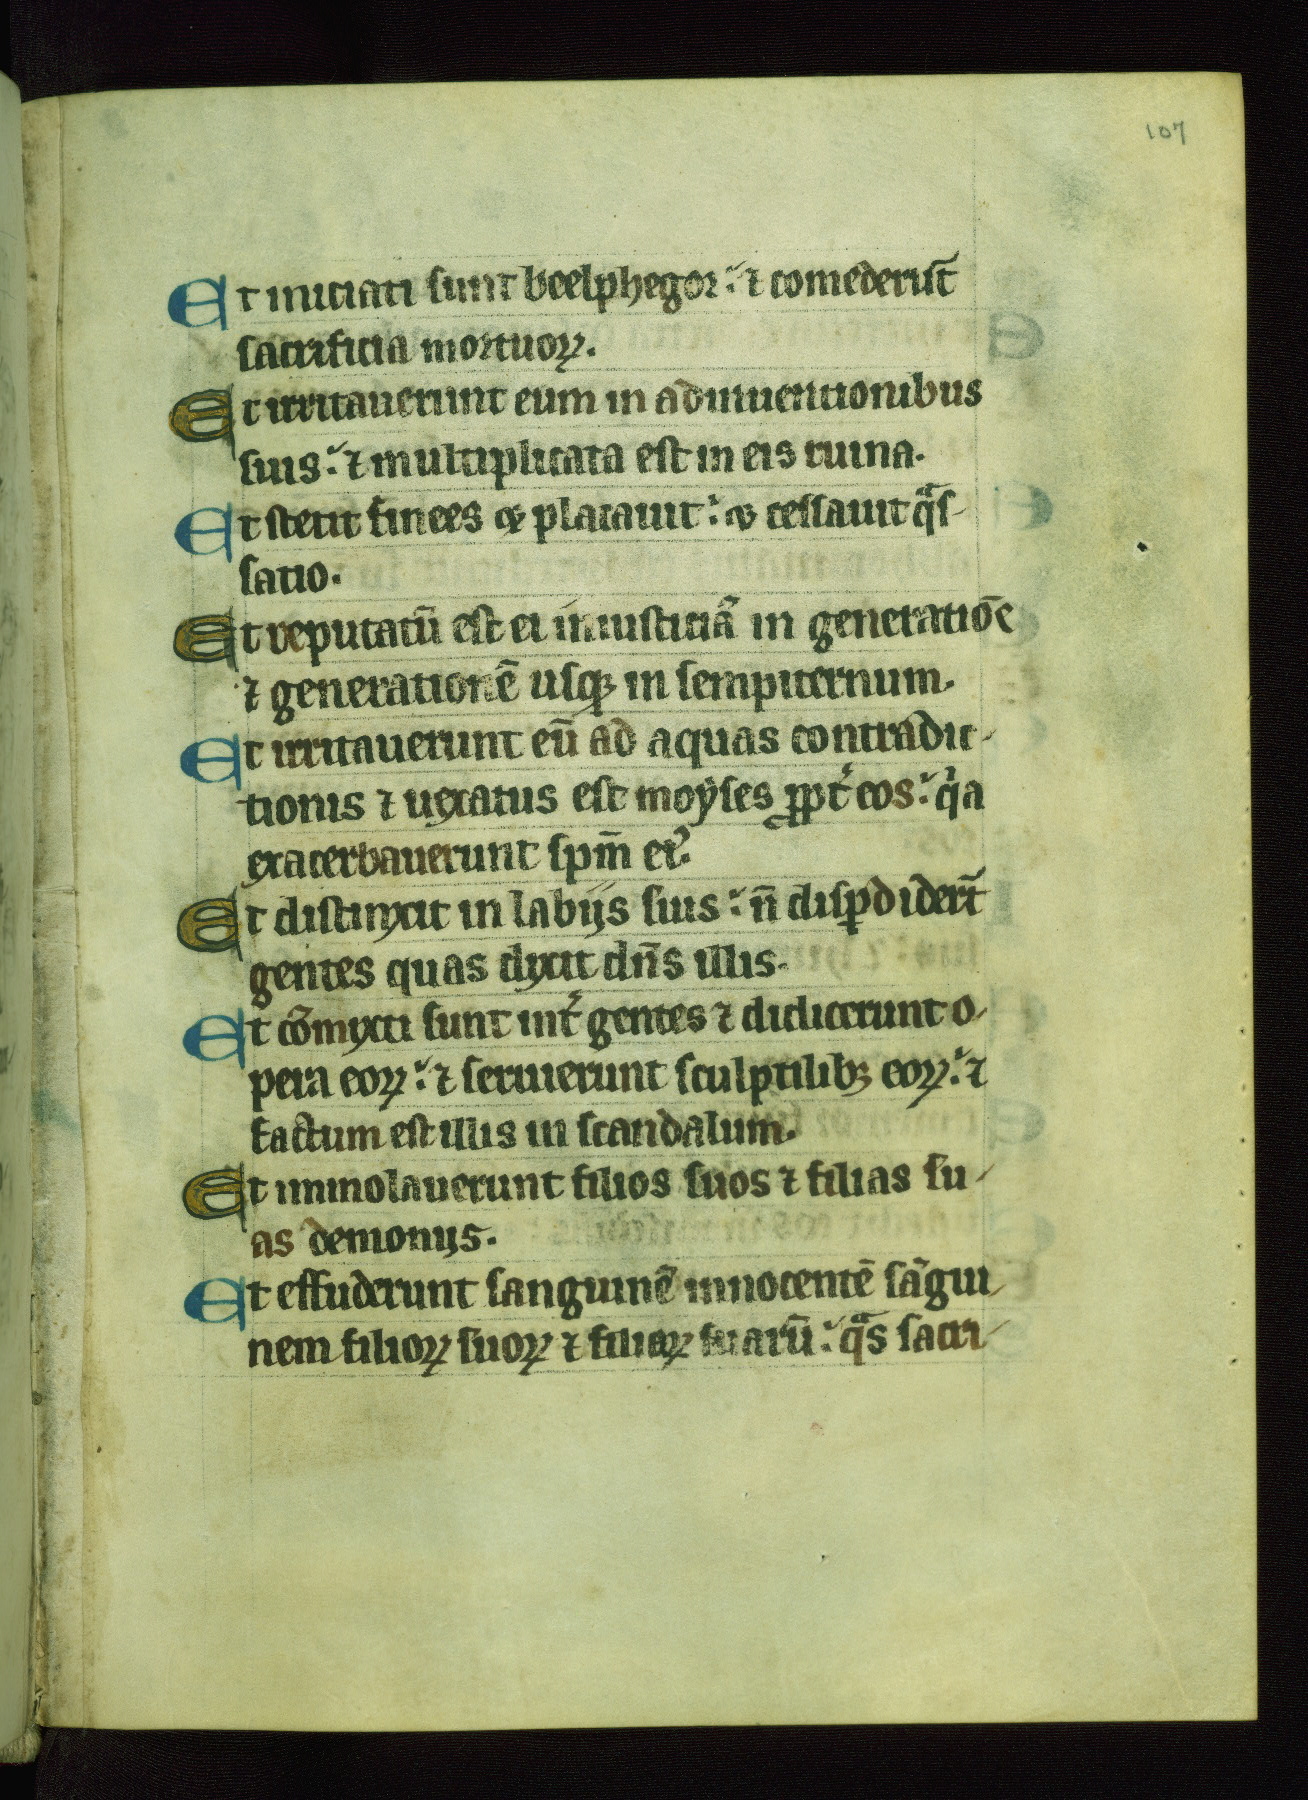 107
Et iniciati sunt beelphegor: ⁊ comederūt
sacrificia mortuoꝝ.
Et irritauerunt eum in adinuentionibus
suis: ⁊ multiplicata est in eis ruina.
Et stetit finees & placauit: & cessauit qᵃs-
satio.
Et reputatū est ei in iusticiā in generatiōe
⁊ generationē usqꝫ in sempiternum.
Et irritauerunt eū ad aquas contradic-
tionis ⁊ uexatus est moẏses ꝓpt̾ eos: qⁱa
exacerbauerunt spm̄ ei᾽.
Et distinxit in labijs suis: n̄ disꝑdider̄t
gentes quas dixit dn̄s illis.
Et cōmixti sunt int̾ gentes ⁊ didicerunt o-
pera eoꝝ: ⁊ seruierunt sculptilibꝫ eoꝝ: ⁊
factum est illis in scandalum.
Et immolauerunt filios suos ⁊ filias su-
as demonijs.
Et effuderunt sanguinē innocentē sāgui-
nem filioꝝ suoꝝ ⁊ filiaꝝ suarū: qᵃs sacri-